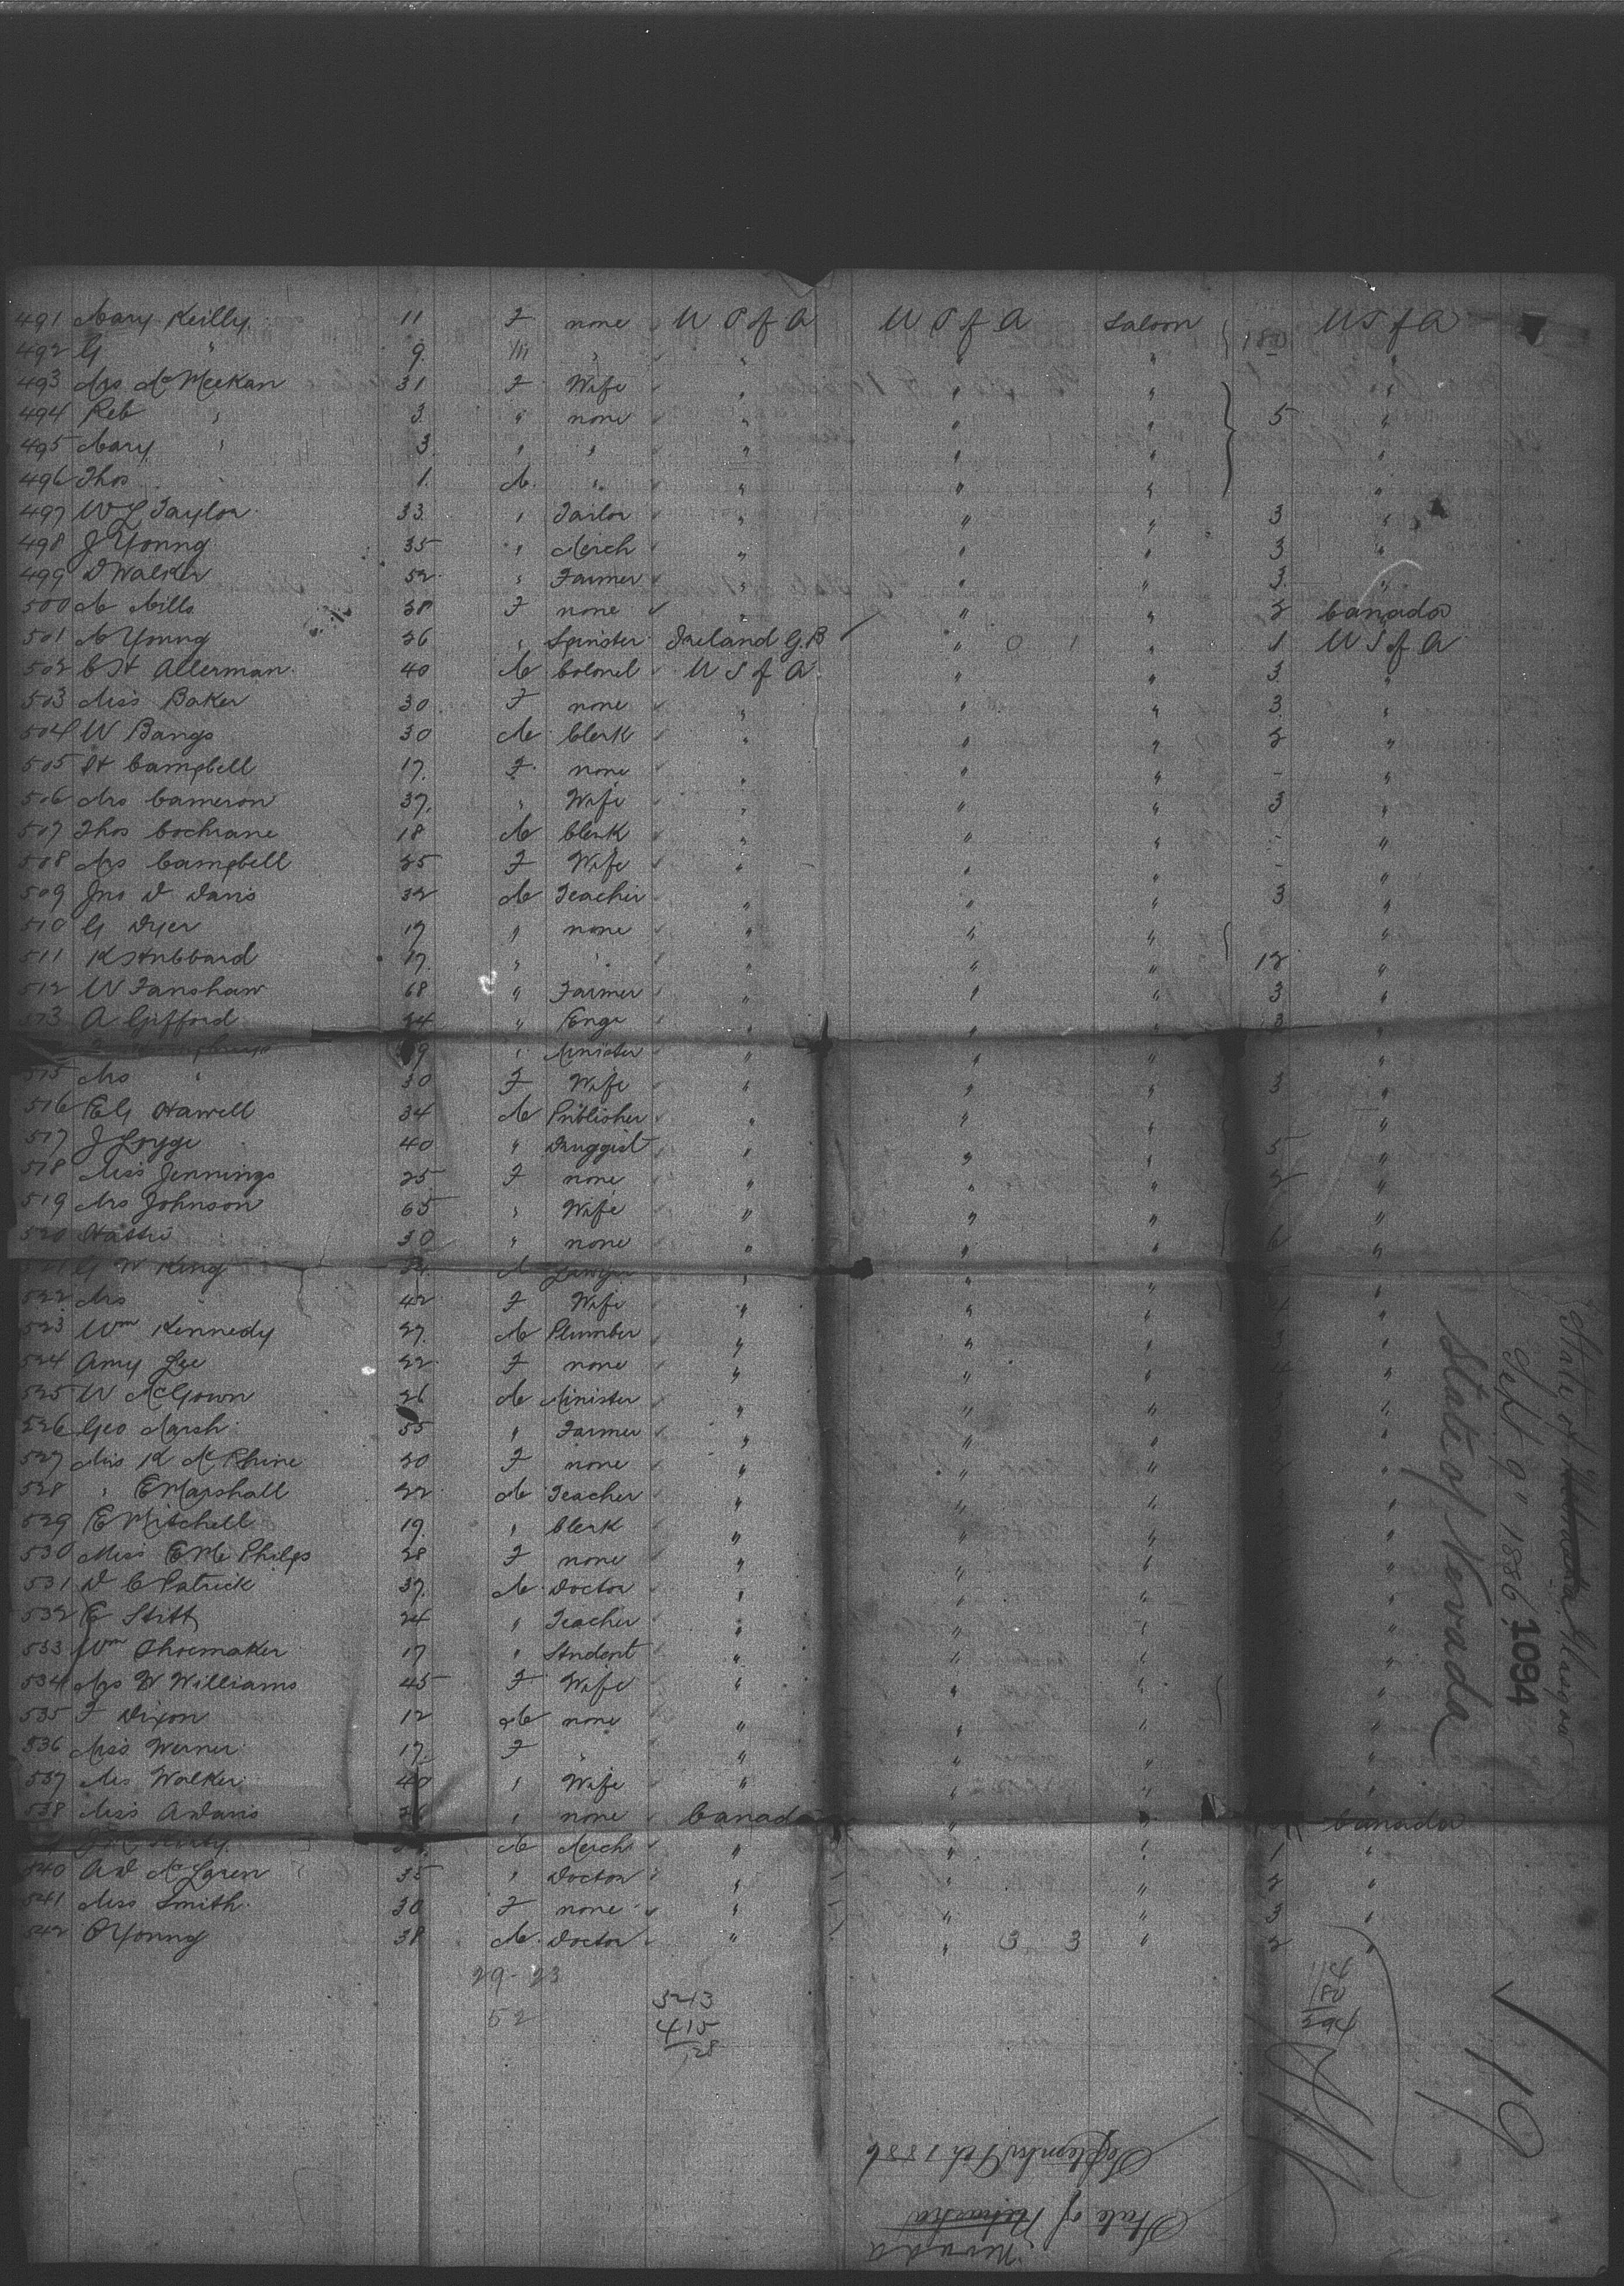 491 Mary Reilly 11 F none U S of A U S of A Saloon 180 U S of A
492 G " 9 M " " " " "
493 Mrs McMeekan 31 F Wife " " " "
494 Reb " 3 " none " " " 5 "
495 Mary " 3 " " " " " "
496 Thos " 1 M " " " " "
497 W L Taylor 33 " Tailor " " " 3 "
498 J Young 35 " Merch " " " 3 "
499 D Walker 52 " Farmer " " " 3 "
500 M Mills 38 F none " " " 2 Canada
501 M Young 26 " Spinster Ireland G.B " 0 1 " 1 U S of A
502 C H Allerman 40 M Colonel U S of A " " 3 "
503 Miss Baker 30 F none " " " 3 "
504 W Bangs 30 M Clerk " " " 2 "
505 H Campbell 17 F none " " " - "
506 Mrs Cameron 37 " Wife " " " 3 "
507 Thos Cochrane 18 M Clerk " " " - "
508 Mrs Campbell 25 F Wife " " " - "
509 Jno D Davis 32 M Teacher " " " 3 "
510 G Dyer 17 " none " " " "
511 K Hubbard 17 " " " " " 12 "
512 W Fanshaw 68 " Farmer " " " 3 "
513 A Gifford 24 " Engr " " " 3 "
" Minister " " " "
515 Mrs " 30 F Wife " " " 3 "
516 E G Hawell 34 M Publisher " " " "
517 J 40 " Druggist " " " 5 "
518 Miss Jennings 25 F none " " " 2 "
519 Mrs Johnson 65 " Wife " " " "
520 Hattie 30 " none " " " 6 "
521 G W King M Lawyer " " " "
522 Mrs " 42 F Wife " " " "
523 Wm Kennedy 27 M Plumber " " " 3 "
524 Amy Lee 22 F none " " " "
525 W McGown 26 M Minister " " " "
526 Geo Marsh 55 " Farmer " " " "
527 Miss K McPhine 20 F none " " " "
528 " E Marshall 22 M Teacher " " " "
529 E Mitchell 19 " Clerk " " " "
530 Miss E Mc Philps 28 F none " " " "
531 D C Patrick 37 M Doctor " " " "
532 E Stitt 24 " Teacher " " " "
533 Wm Shoemaker 17 " Student " " " "
534 Mrs W Williams 45 F Wife " " " "
535 F Dixon 12 M none " " " "
536 Miss Werner 17 F " " " " "
537 Mrs Walker 40 " Wife " " " "
538 Miss A Davis " none Canada " " Canada
M Merch " " " 1 "
540 A D McLaren 35 " Doctor " " " 2 "
541 Miss Smith 30 F none " " " 3 "
542 O Young 38 M Doctor " " 3 3 " 2 "
29-23
52
543
415
128
180
294
19
State of Nebraska Glasgow
Sept 9" 1886
1094
State of Nevada
September 9th 1886
State of Nebraska
Nevada